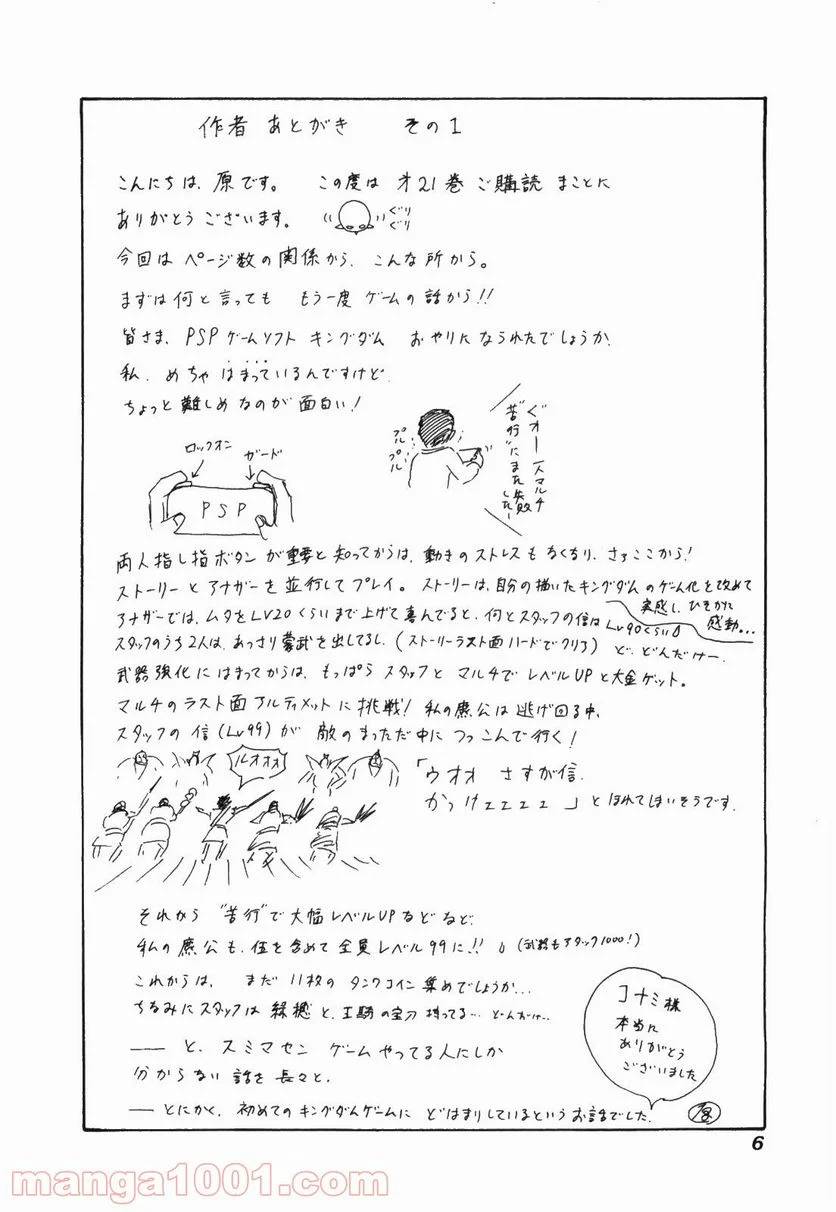 作者 あとがき その1
こんにちは、原です。 この度は 才21巻 ご購読 まことに
ありがとうございます。
ぐりぐり
今回は ページ数の関係から、こんな所から。
まずは何と言っても もう一度 ゲームの話から!!
皆さま、PSPゲームソフト キングダム おやりになられたでしょうか。
私、めちゃ はまっているんですけど、
ちょっと難しめなのが面白い!
ロックオン
ガード
PSP
プルプル
ぐオーースマルチ
"苦行"にまた失敗
した!
両人指し指ボタン が重要と知ってからは、動きのストレスもなくなり、さァここから!
ストーリーとアナザーを並行してプレイ。 ストーリーは、自分の描いたキングダムのゲーム化を改めて
実感し、ひそかに
感動...
アナザーでは、ムタをLv20くらいまで上げて喜んでると、何とスタッフの信はLv90くらい
スタッフのうち2人は、あっさり蒙武を出してるし、(ストーリーラスト面ハードでクリア) ど、どんだけー
武器強化にはまってからは、もっぱら スタッフと マルチで レベルUPと大金ゲット。
マルチのラスト面アルティメットに挑戦! 私の廉公は逃げ回る中、
スタッフの信(Lv99)が 敵のまっただ中に つっこんで行く!
ルオオオ
「ウオオ さすが信、
かっけェェェェ」とほれてしまいそうです。
それから "苦行"で大幅レベルUPなどなど、
私の廉公も、伍を含めて全員レベル99に!! (武器もアタック1000!)
これからは、 まだ 11枚の タンクコイン集めでしょうか...
ちなみにスタッフは 録嗚と、王騎の宝刀 持ってる… どんだけ…
―― と、スミマセン ゲームやってる人にしか
分からない 話を 長々と、
―― とにかく、初めてのキングダムゲームに どはまりしているというお話でした。
原
コナミ様
本当に
ありがとう
ございました
6
manga1001.com